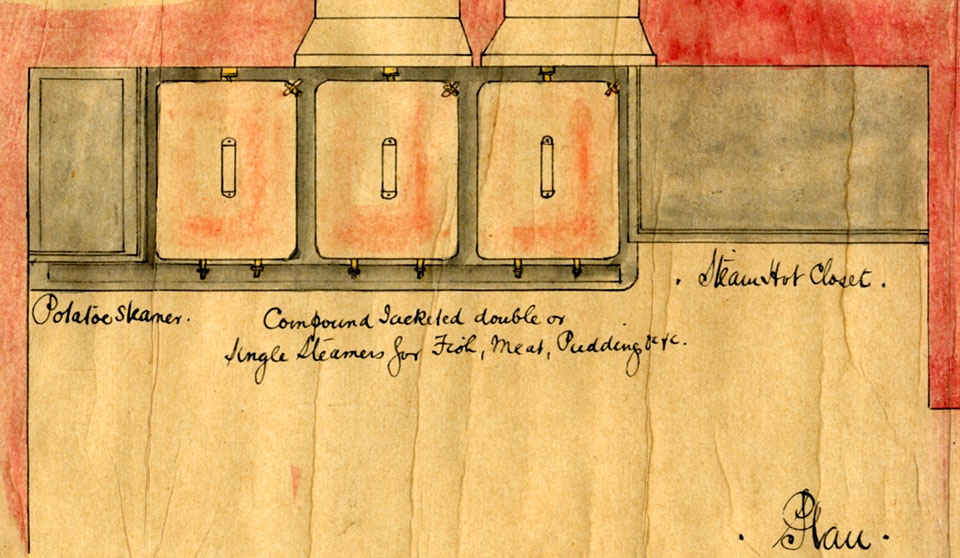 Potatoe Steamer.
Compound Jacketed double or
Single Steamers for Fish, Meat, Puddings &c &c.
. Steam Hot Closet .
. Plan .